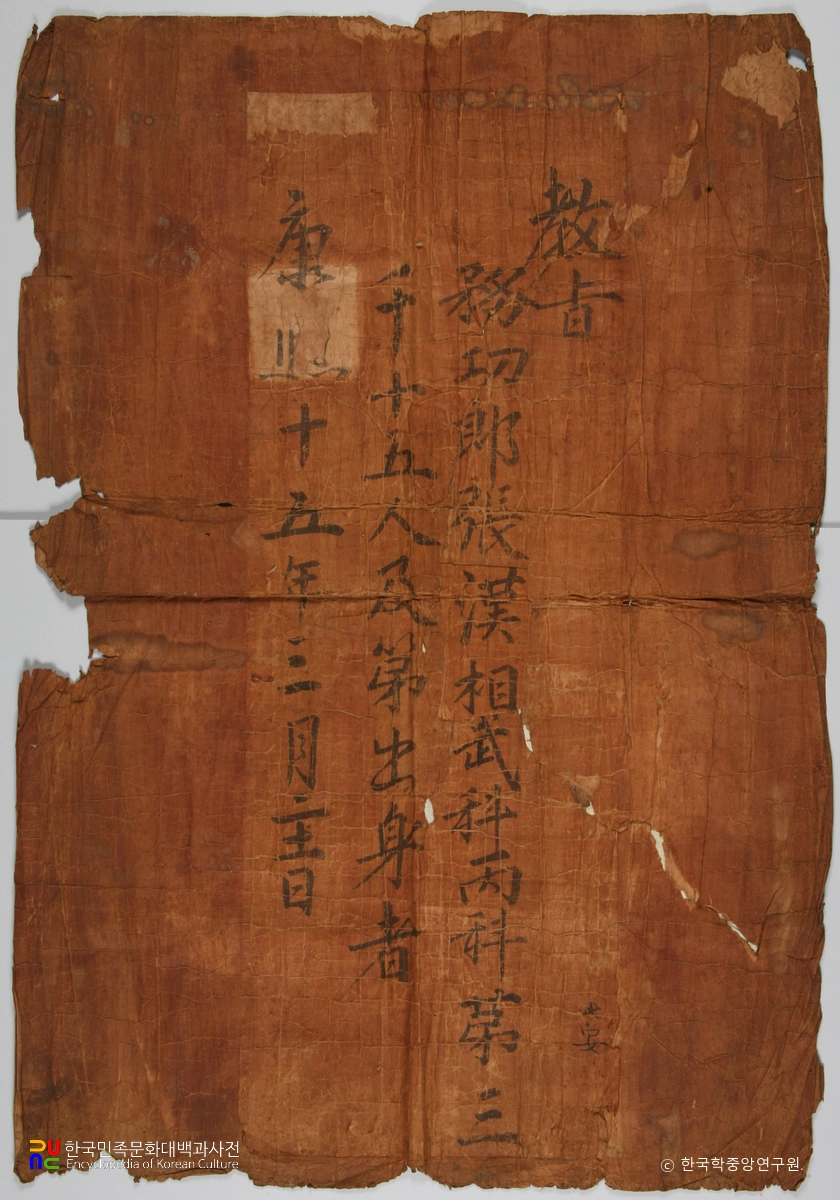 教旨
務功郎張漢相武科丙科第三
千十五人及第出身者
康熙十五年三月二十一日
한국민족문화대백과사전
Encyclopedia of Korean Culture
© 한국학중앙연구원.